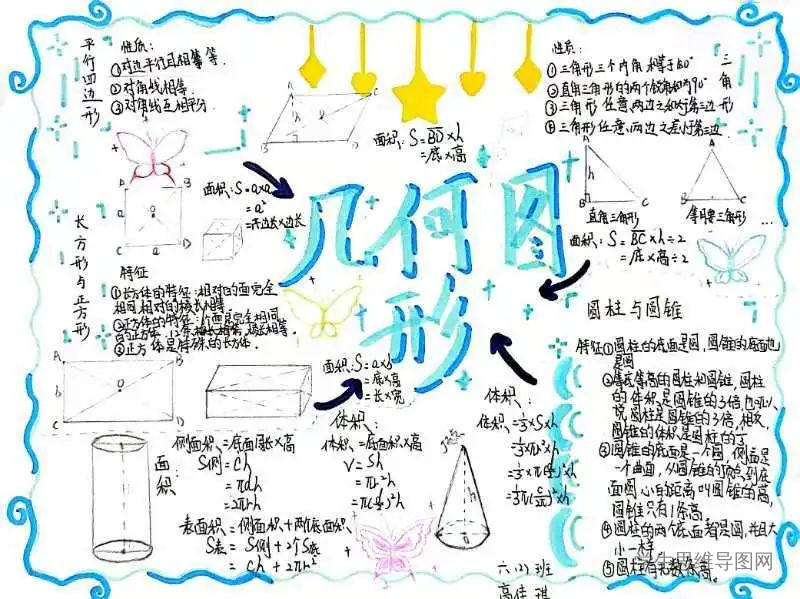 平行四边形
性质:
①对边平行且相等.
②对角线相等.
③对角线互相平分.
A
C
h
B
D
面积:S=BD×h
=底×高
性质:
①三角形三个内角和等于180°
②直角三角形的两个锐角和为90°
③三角形任意两边之和大于第三边
④三角形任意两边之差小于第三边
三角形
A
h
B
C
直角三角形
A
B
C
等腰三角形
...
面积:S=BC×h÷2
=底×高÷2
几何图
形
长方形与正方形
A
B
a
a
C
D
面积:S=a×a
=a²
=边长×边长
特征
①长方体的特征:相对的面完全
相同,相对的棱长相等.
②正方体的特征:
的正方体.12条
③正方体是特殊的长方体.
A
B
b
O
C
D
面积:S=a×b
=底×高
=长×宽
面积
侧面积:=底面周长×高
S侧=Ch
=πdh
=2πrh
表面积:=侧面积+两个底面积
S表=S侧+2个S底
=Ch+2πr²
体积:
体积:=底面积×高
V=Sh
=πr²h
体积:
体积:=⅓×S×h
圆柱与圆锥
特征①圆柱的底面是圆,圆锥的底面也
是圆
②等底等高的圆柱和圆锥,圆柱
的体积是圆锥的3倍也可以
说圆柱是圆锥的3倍,相反,
圆锥的体积是圆柱的⅓
③圆锥的底面是一个圆,侧面是
一个曲面,从圆锥的顶点到底
面圆心的距离叫圆锥的高,
圆锥只有1条高
④圆柱的两个底面都是圆,并且大
小一样
⑤圆柱有无数条高.
六(2)班
思维导图网